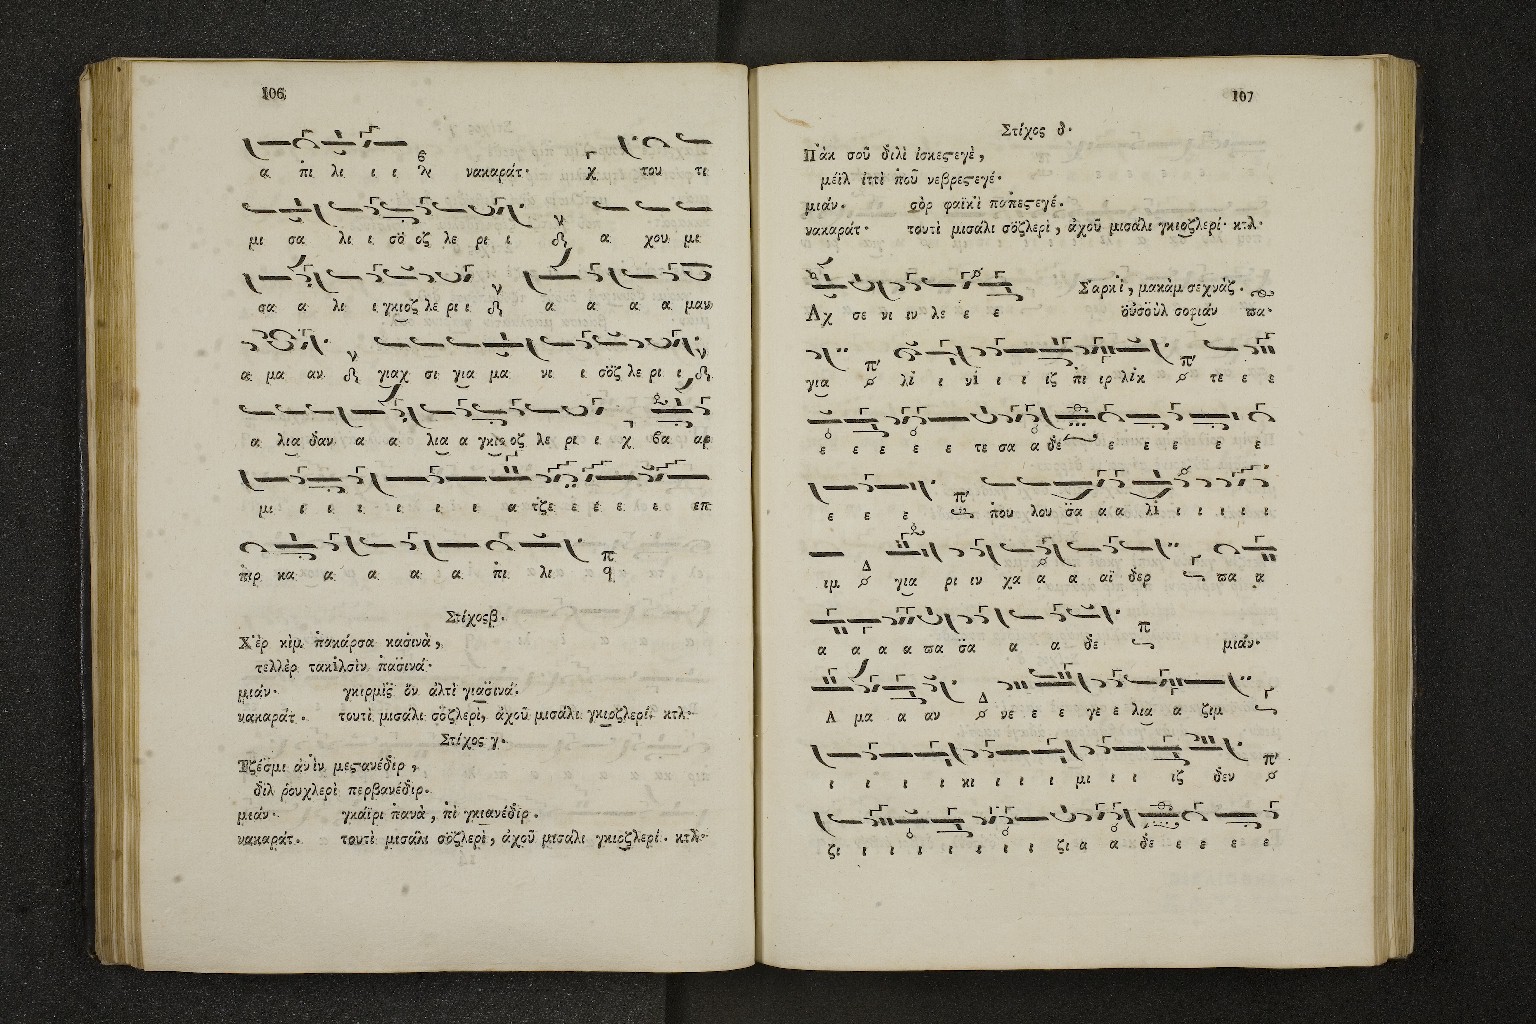 106
α πι λι ι ι λι νακαράτ· χ του τι
μι σα λι ι σό οζ λε ρι ι α χου μι
σα α λι ι γκιοζ λε ρι ι α α α α μαν
α μα αν γιαχ σι για μα νι ι σόζ λε ρι ι
α λια δαν α α λια α γκιοζ λε ρι ι χ βα αρ
μι ι ι ι ι ι ι α τζε ε έ ε ε επ
πιρ κα α α α α πι λι q
Στίχος β.
Χὲρ κὶμ πακάρσα κασινὰ,
τελλὲρ τακὶλσὶν πασινά·
μιάν· γκιρμὶς ὂν ἀλτὶ γιασινά·
νακαράτ. τουτὶ μισάλι σὄζλερὶ, ἀχοῦ μισάλι γκιοζλερί· κτλ·
Στίχος γ.
Τζέσμι ἀνὶν μεϛανέδιρ,
δὶλ ῥουχλερὶ περβανέδιρ.
μιάν· γκαϊρι πανὰ, πὶ γκιανέδιρ.
νακαράτ. τουτὶ μισάλι σὄζλερὶ, ἀχοῦ μισάλι γκιοζλερί. κτλ·
107
Στίχος δ.
Πὰκ σοῦ διλὲ ἰσκεϛεγὲ,
μέϊλ ἰττὶ ποῦ νεβρεϛεγέ·
μιάν. σὸρ φαϊκὶ ποπεϛεγέ.
νακαράτ· τουτὶ μισάλι σόζλερὶ, ἀχοῦ μισάλι γκιοζλερί· κτλ·
Σαρκὶ, μακὰμ σεχνάζ.
Αχ σε νι ιν λε ε ε οὐσοὺλ σοφιάν πα·
για λὶ ι νὶ ι ι ιζ πι ιρ λὶκ τε ε ε
ε ε ε ε ε τε σα α δε ε ε ε ε ε
ε ε ε που λου σα α α λὶ ι ι ι ι ι
ιμ για ρι ιν χα α α αϊ δερ πα α
α α α α πα σα α α δε μιάν·
Α μα α αν νε ε ε γε ε λια α ζιμ
ι ι ι ι κι ι ι ι μι ι ι ιζ δεν
ζι ι ι ι ι ι ι ι ζι α α δε ε ε ε ε